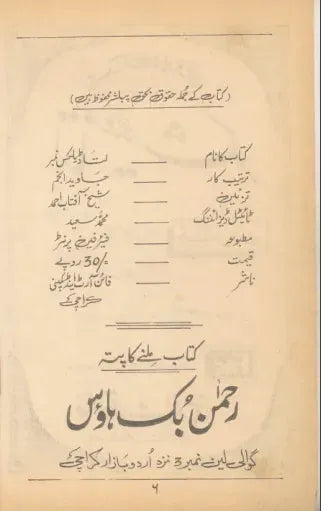 (کتاب کے جملہ حقوق بحق پبلشر محفوظ ہیں)
کتاب کا نام —— لتا ڈیلکس نمبر
ترتیب کار —— جاوید انجم
تزئین —— شیخ آفتاب احمد
ٹائیٹل ڈیزائننگ —— محمد سعید
مطبوعہ —— فیئر فین پرنٹر
قیمت —— 30/= روپے
ناشر —— فائن آرٹ اینڈ کمپنی
کراچی
کتاب ملنے کا پتہ
رحمٰن بک ہاؤس
گوالی لین نمبر 3 نزد اردو بازار کراچی
۶